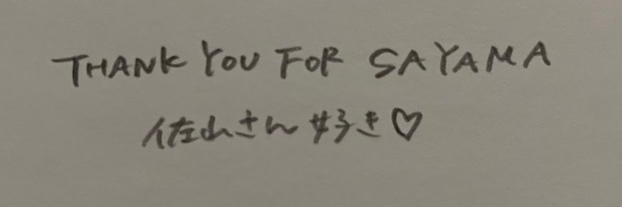 THANK YOU FOR SAYAMA
佐山さん好き♡